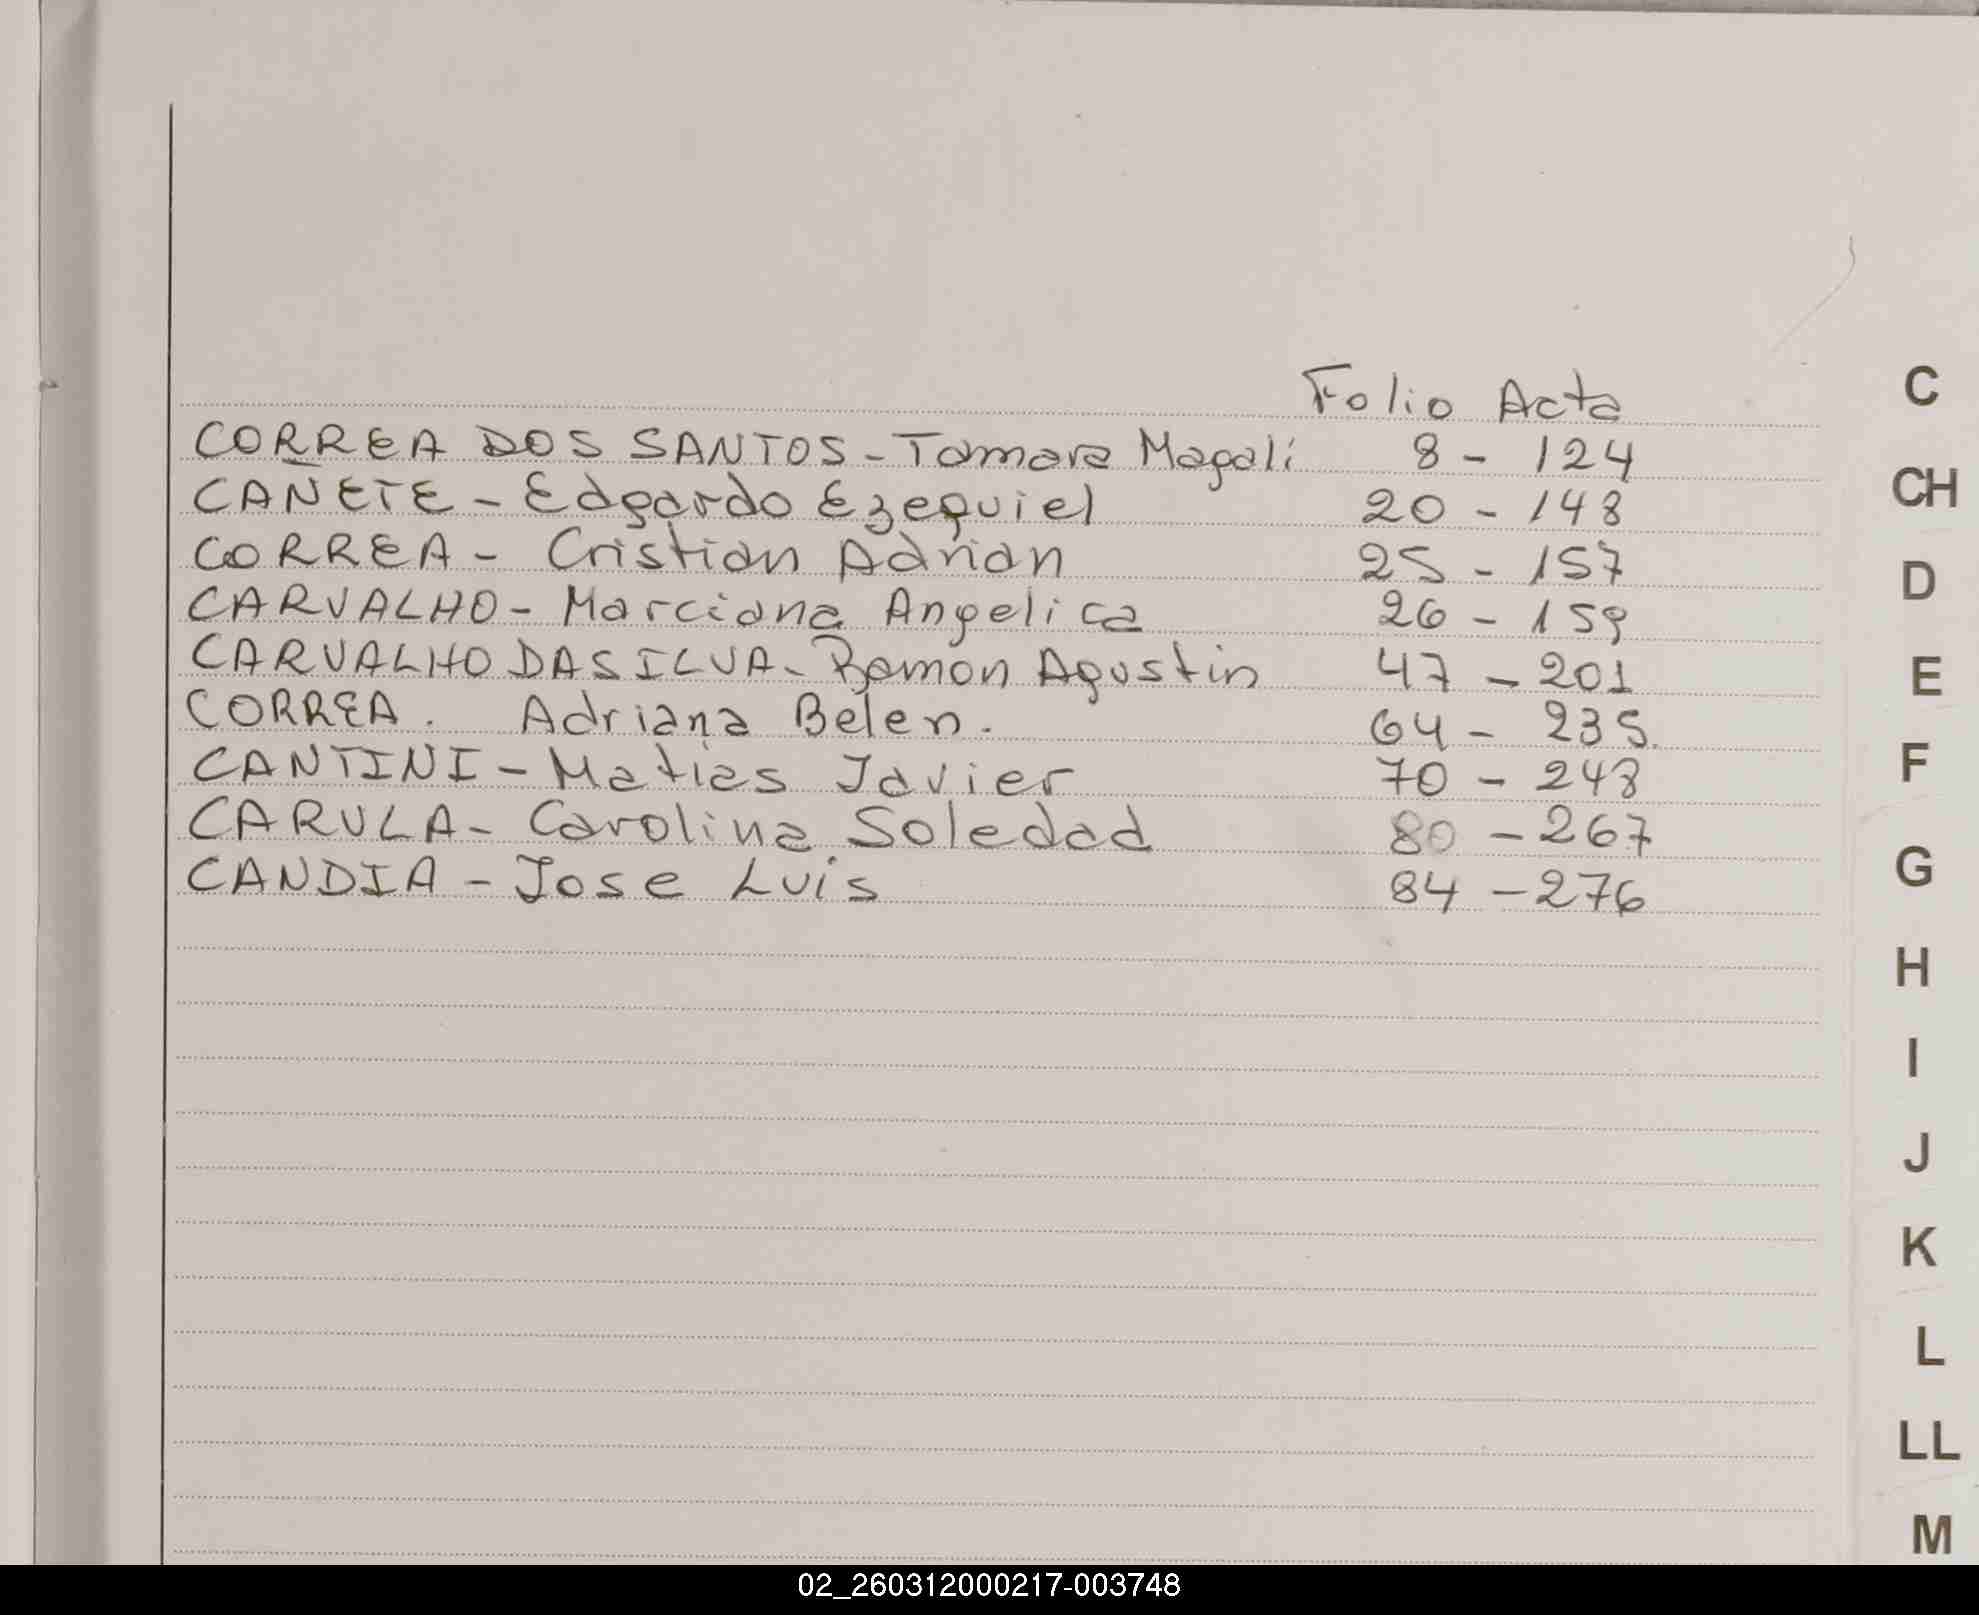 Folio Acta
CORREA DOS SANTOS - Tamara Magali 8 - 124
CAÑETE - Edgardo Ezequiel 20 - 148
CORREA - Cristian Adrian 25 - 157
CARVALHO - Marciana Angelica 26 - 159
CARVALHO DA SILVA - Ramon Agustin 47 - 201
CORREA. Adriana Belen. 64 - 235.
CANTINI - Matias Javier 70 - 248
CARULA - Carolina Soledad 80 - 267
CANDIA - Jose Luis 84 - 276
C
CH
D
E
F
G
H
I
J
K
L
LL
M
02_260312000217-003748